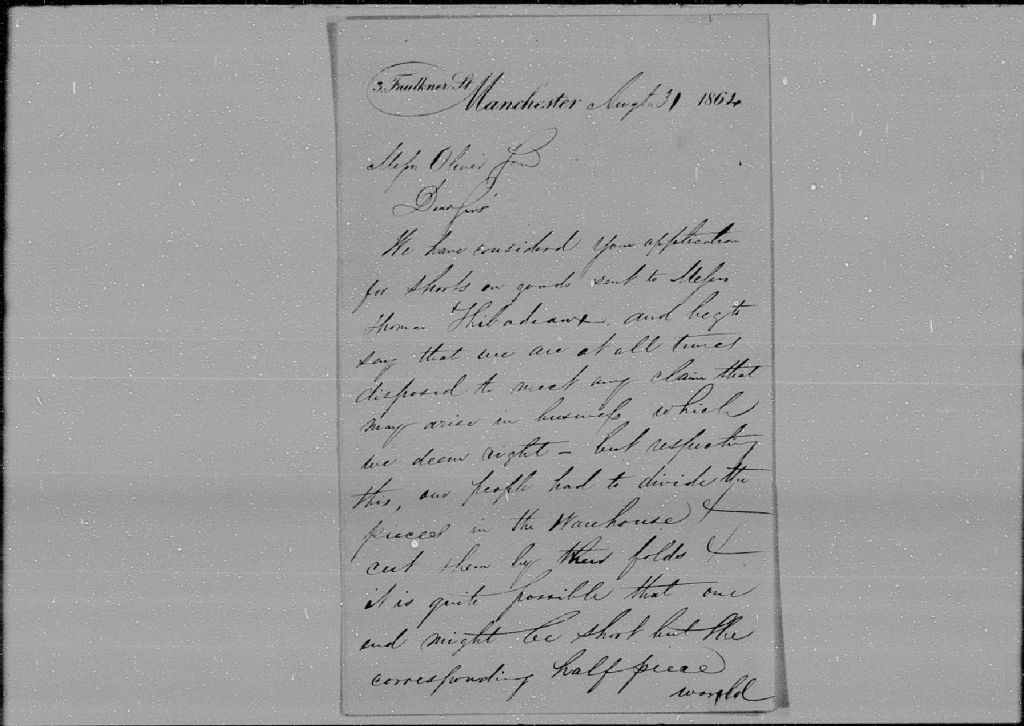 3, Faulkner St
Manchester Augt. 31 1864
Messrs Oliver
Dear Sirs
We have considerd your application
for shorts on goods sent to Messrs
Thomas Thibadeaux and beg to
say that we are at all times
disposed to meet any claim that
may arise in business which
we deem right - but respecting
this, our people had to divide the
pieces in the Warehouse &
cut them by their folds &
it is quite possible that one
end might be short but the
corresponding half piece
would